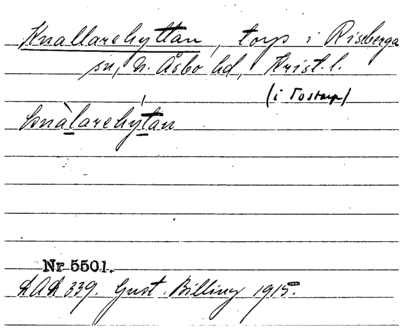 Knallarehyttan, torp i Riseberga
sn, N. Åsbo hd, Krist. l.
(i Tostarp)
knàlarehýtan
Nr 5501.
LAL 339. Gust. Billing 1915.